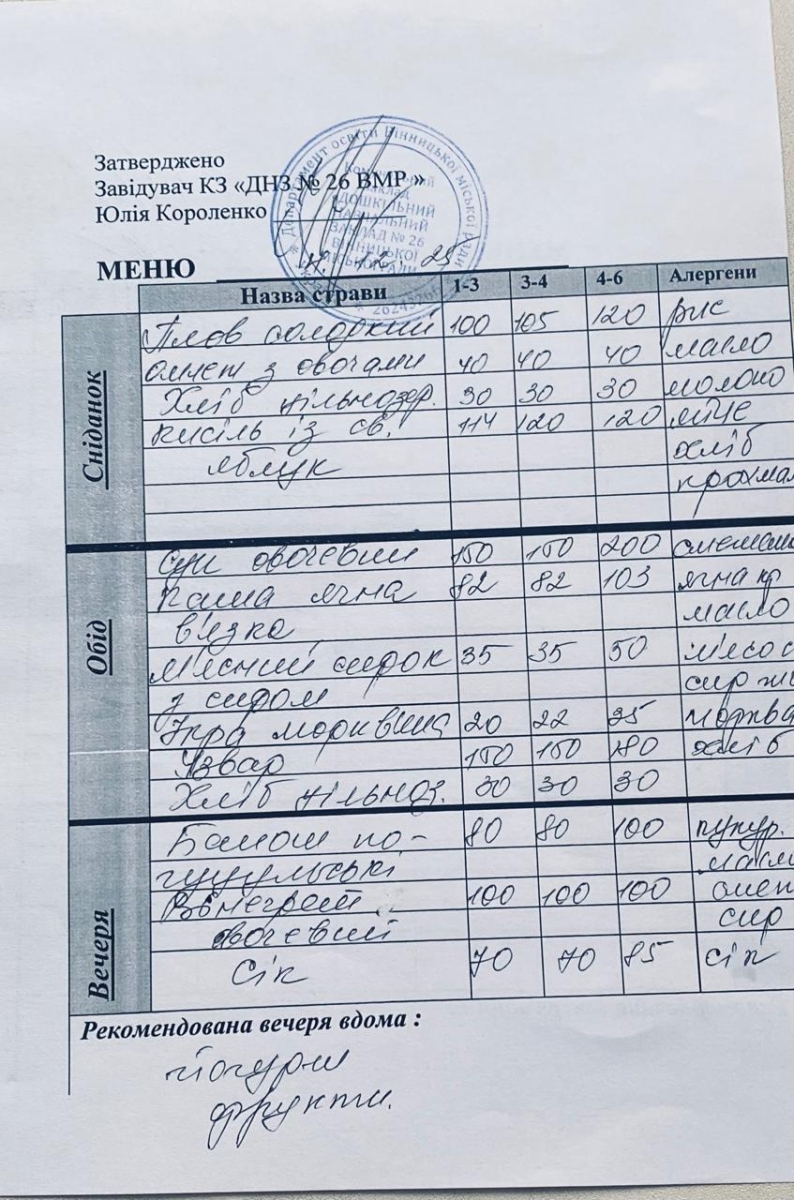 Затверджено
Завідувач КЗ «ДНЗ № 26 ВМР »
Юлія Короленко
Департамент освіти Вінницької міської ради
ДОШКІЛЬНИЙ
НАВЧАЛЬНИЙ
ЗАКЛАД № 26
ВІННИЦЬКОЇ
МІСЬКОЇ РАДИ
МЕНЮ 12 25
Назва страви 1-3 3-4 4-6 Алергени
Сніданок
Плов солодкий 100 105 120 рис
омлет з овочами 40 40 40 масло
Хліб цільнозер. 30 30 30 молоко
кисіль із св. 114 120 120 яйце
яблук хліб
крохмал
Обід
Суп овочевий 150 150 200 сметана
Каша ячна 82 82 103 ячна кр
в'язка масло
М'ясний сирок 35 35 50 м'ясо с
з сиром сир
Ікра морквяна 20 22 25 морква
Узвар 150 150 180 хліб
Хліб цільноз. 30 30 30
Вечеря
Банош по- 80 80 100 кукур.
гуцульські масл
Вінегрет 100 100 100 смет
овочевий сир
Сік 70 70 85 сік
Рекомендована вечеря вдома :
йогурт
фрукти.